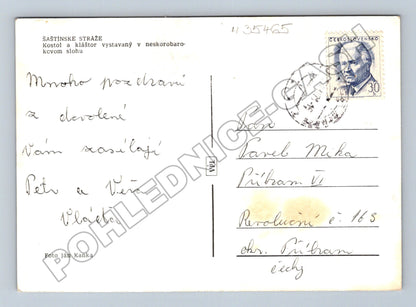 435465
ŠAŠTÍNSKE STRÁŽE
Kostol a kláštor vystavaný v neskorobaro-
kovom slohu
ČESKOSLOVENSKO
30
Mnoho pozdravů
z dovolené
Vám zasílají
Petr a Věra
Pavel Mika
Příbram VI
Revoluční č. 168
okr. Příbram
Čechy
Foto Ján Kafka
POHLEDNICE-CASH